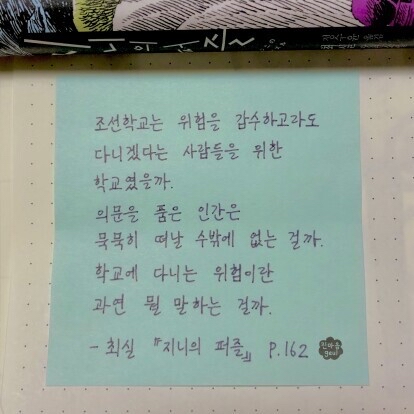 지니의 퍼즐
조선학교는 위험을 감수하고라도
다니겠다는 사람들을 위한
학교였을까.
의문을 품은 인간은
묵묵히 떠날 수밖에 없는 걸까.
학교에 다니는 위험이란
과연 뭘 말하는 걸까.
- 최실 『지니의 퍼즐』 P.162